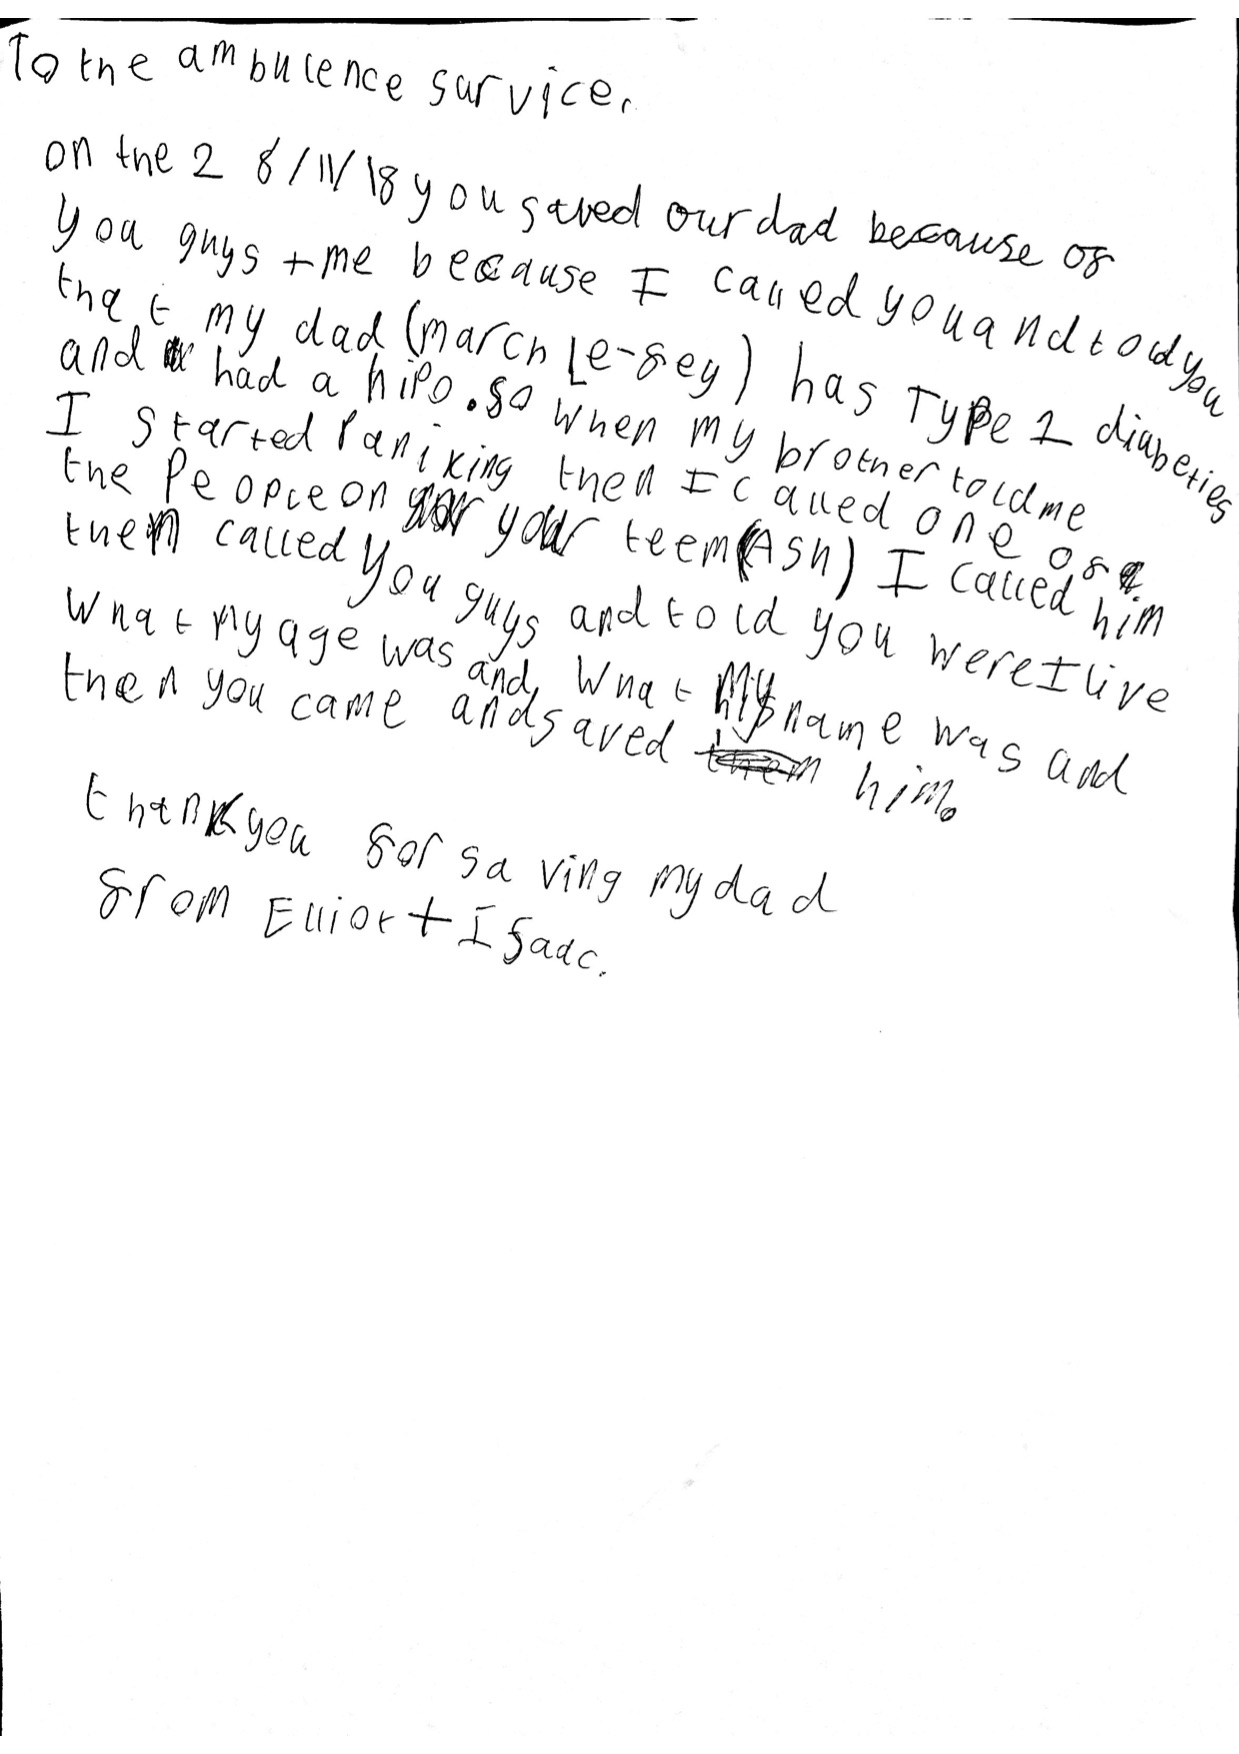 To the ambulence survice,
on the 28/11/18 you saved our dad because of
you guys + me because I called you and told you
that my dad (march Le-fey) has Type 1 diabeties
and had a hipo. so when my brother told me
I started Panicking then I called one of
the People on your teem (Ash) I called him
then called you guys and told you were I live
What my age was and, What my name was and
then you came and saved him.
thankyou for saving my dad
from Elliot + Isaac.